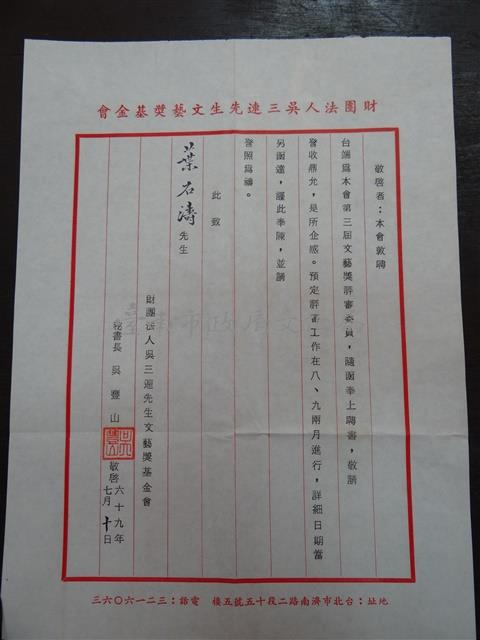 財團法人吳三連先生文藝獎基金會
敬啓者：本會敦聘
台端為本會第三屆文藝獎評審委員，隨函奉上聘書，敬請
詧收鼎允，是所企感。預定評審工作在八、九兩月進行，詳細日期當
另函達，謹此奉陳，並請
詧照為禱。
此致
葉石濤先生
財團法人吳三連先生文藝獎基金會
秘書長 吳豐山 敬啓
六十九年
七月十日
地址：台北市濟南路二段十五號五樓 電話：三二一六〇六三
臺南市政府文